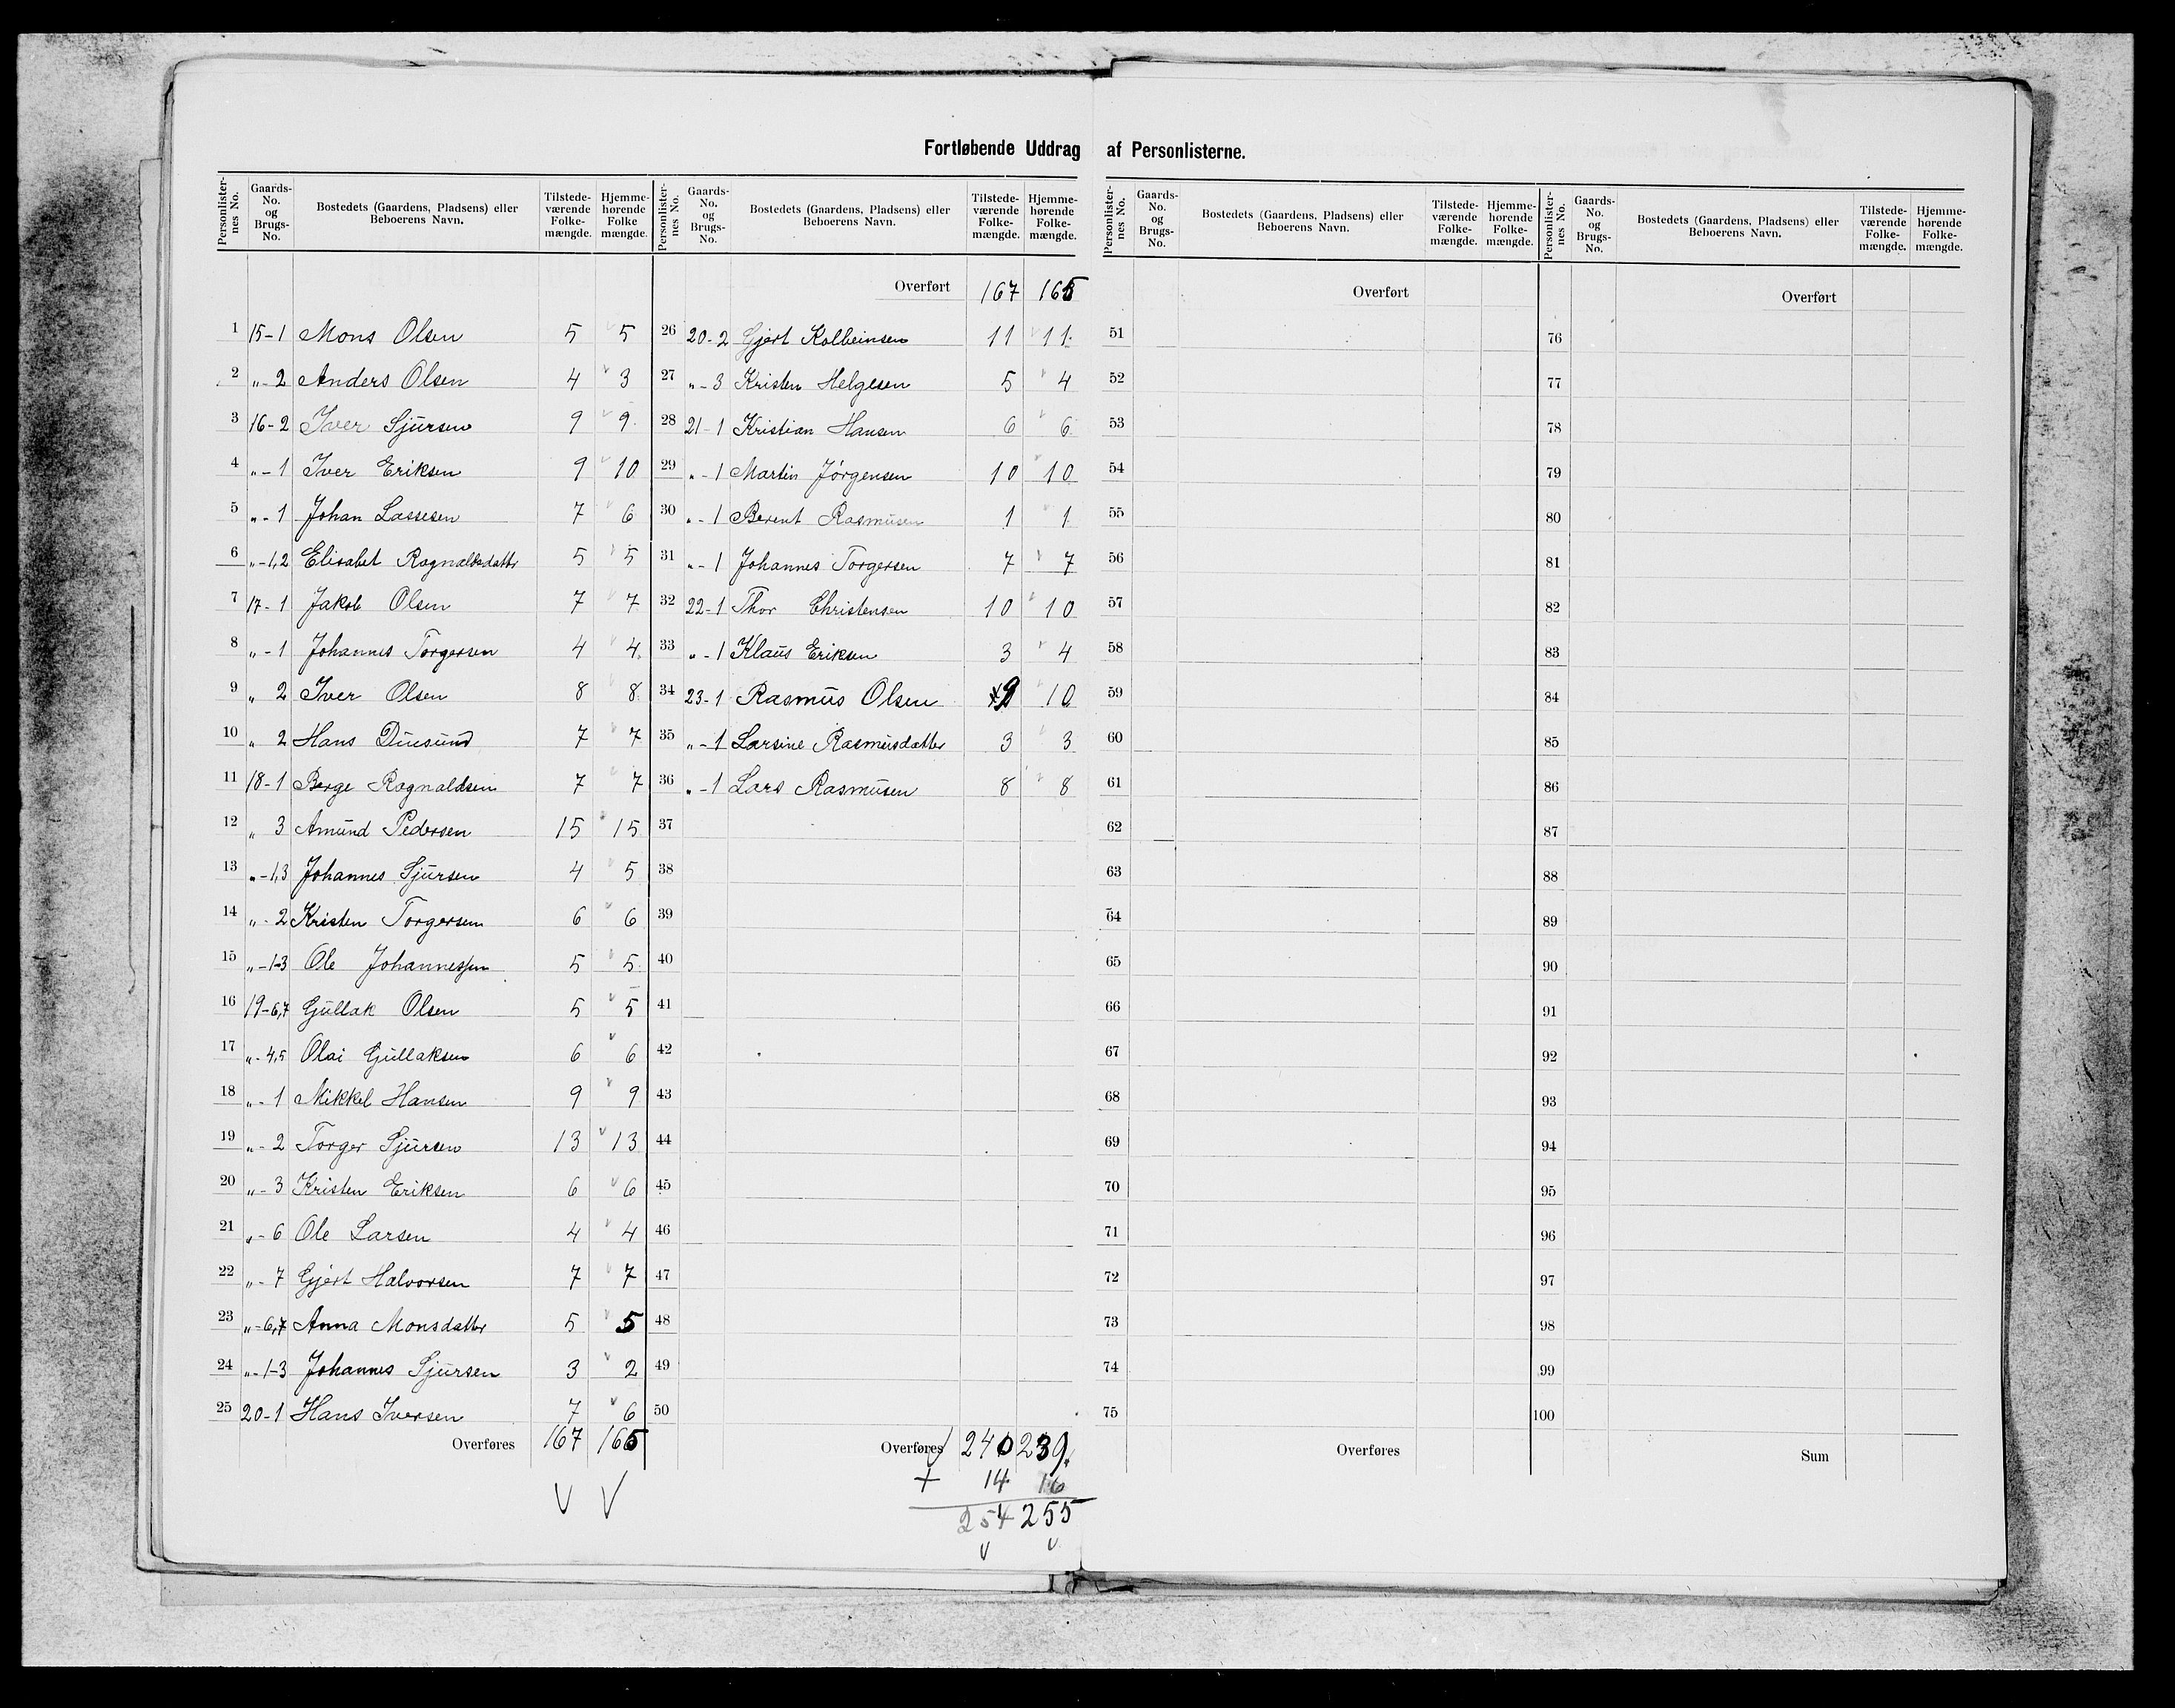 Fortløbende Uddrag af Personlisterne.
Personlister-nes No. | Gaards-No. og Brugs-No. | Bostedets (Gaardens, Pladsens) eller Beboerens Navn. | Tilstede-værende Folke-mængde. | Hjemme-hørende Folke mængde.
1 15-1 Mons Olsen 5 5
2 „-2 Anders Olsen 4 3
3 16-2 Iver Sjursen 9 9
4 „-1 Iver Eriksen 9 10
5 „-1 Johan Lassesen 7 6
6 „-1,2 Elisabet Ragnaldsdatter 5 5
7 17-1 Jakob Olsen 7 7
8 „-1 Johannes Torgersen 4 4
9 „ 2 Iver Olsen 8 8
10 „ 2 Hans Duesund 7 7
11 18-1 Berge Ragnaldsen 7 7
12 „ 3 Amund Pedersen 15 15
13 „-1,3 Johannes Sjursen 4 5
14 „-2 Kristen Torgersen 6 6
15 „-1-3 Ole Johannessen 5 5
16 19-6,7 Gullak Olsen 5 5
17 „-4,5 Olai Gullaksen 6 6
18 „-1 Mikkel Hansen 9 9
19 „-2 Torger Sjursen 13 13
20 „-3 Kristen Eriksen 6 6
21 „-6 Ole Larsen 4 4
22 „-7 Gjert Halvorsen 7 7
23 „-6,7 Anna Monsdatter 5 5
24 „-1-3 Johannes Sjursen 3 2
25 20-1 Hans Iversen 7 6
Overføres 167 165
Personlister-nes No. | Gaards-No. og Brugs-No. | Bostedets (Gaardens, Pladsens) eller Beboerens Navn. | Tilstede-værende Folke-mængde. | Hjemme-hørende Folke-mængde.
Overført 167 165
26 20-2 Gjert Kolbeinsen 11 11
27 „-3 Kristen Helgesen 5 4
28 21-1 Kristian Hansen 6 6
29 „-1 Martin Jørgensen 10 10
30 „-1 Berent Rasmusen 1 1
31 „-1 Johannes Torgersen 7 7
32 22-1 Thor Christensen 10 10
33 „-1 Klaus Eriksen 3 4
34 23-1 Rasmus Olsen 9 10
35 „-1 Larsine Rasmusdatter 3 3
36 „-1 Lars Rasmusen 8 8
37
38
39
40
41
42
43
44
45
46
47
48
49
50
Overføres 240 239
+ 14 16
254 255
Personlister-nes No. | Gaards-No. og Brugs-No. | Bostedets (Gaardens, Pladsens) eller Beboerens Navn. | Tilstede-værende Folke-mængde. | Hjemme-hørende Folke-mængde.
Overført
51
52
53
54
55
56
57
58
59
60
61
62
63
64
65
66
67
68
69
70
71
72
73
74
75
Overføres
Personlister-nes No. | Gaards-No. og Brugs-No. | Bostedets (Gaardens, Pladsens) eller Beboerens Navn. | Tilstede-værende Folke-mængde. | Hjemme-hørende Folke-mængde.
Overført
76
77
78
79
80
81
82
83
84
85
86
87
88
89
90
91
92
93
94
95
96
97
98
99
100
Sum